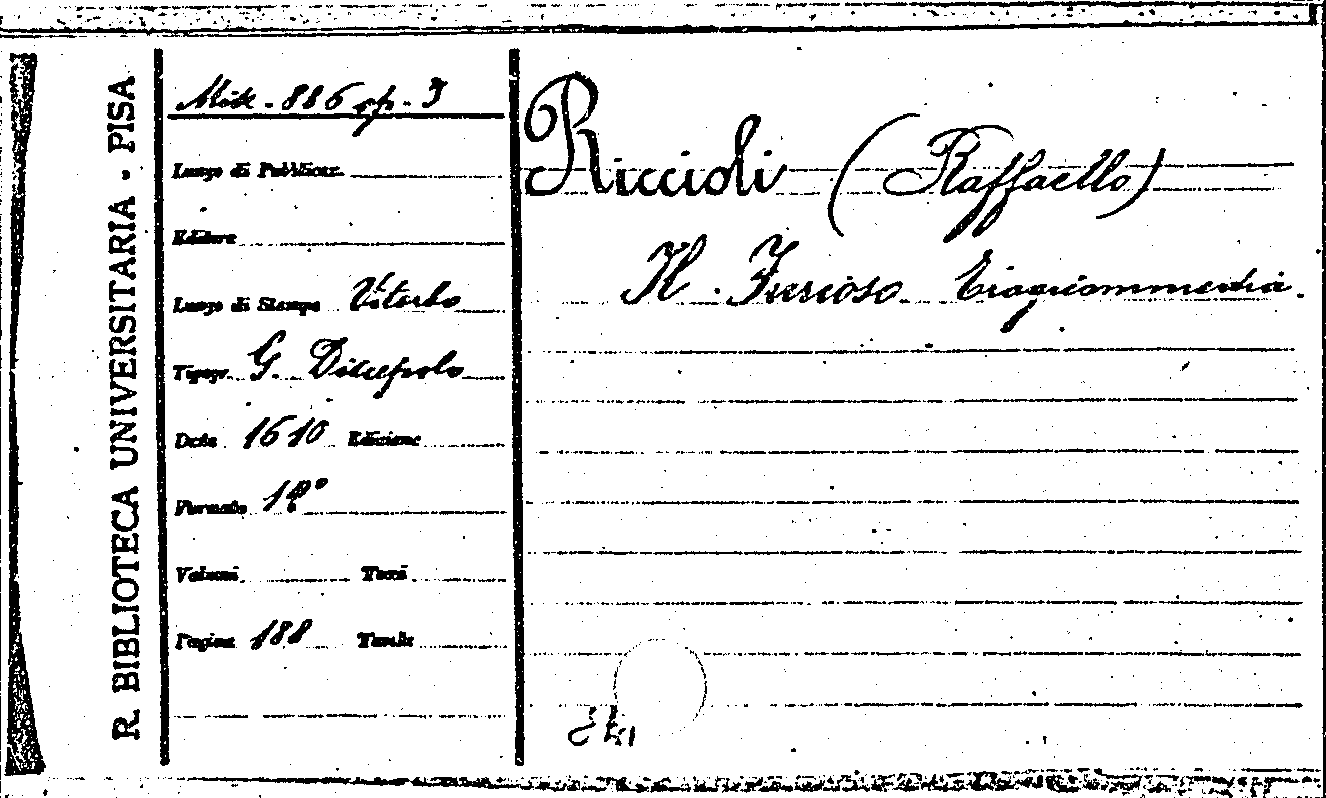 R. BIBLIOTECA UNIVERSITARIA - PISA
Misc. 886 op. 3
Luogo di Pubblicaz.
Editore
Luogo di Stampa Viterbo
Tipogr. G. Discepolo
Data 1610 Edizione
Formato 12°
Volumi Tomi
Pagine 188 Tavole
Riccioli (Raffaello)
Il Furioso Tragicommedia.